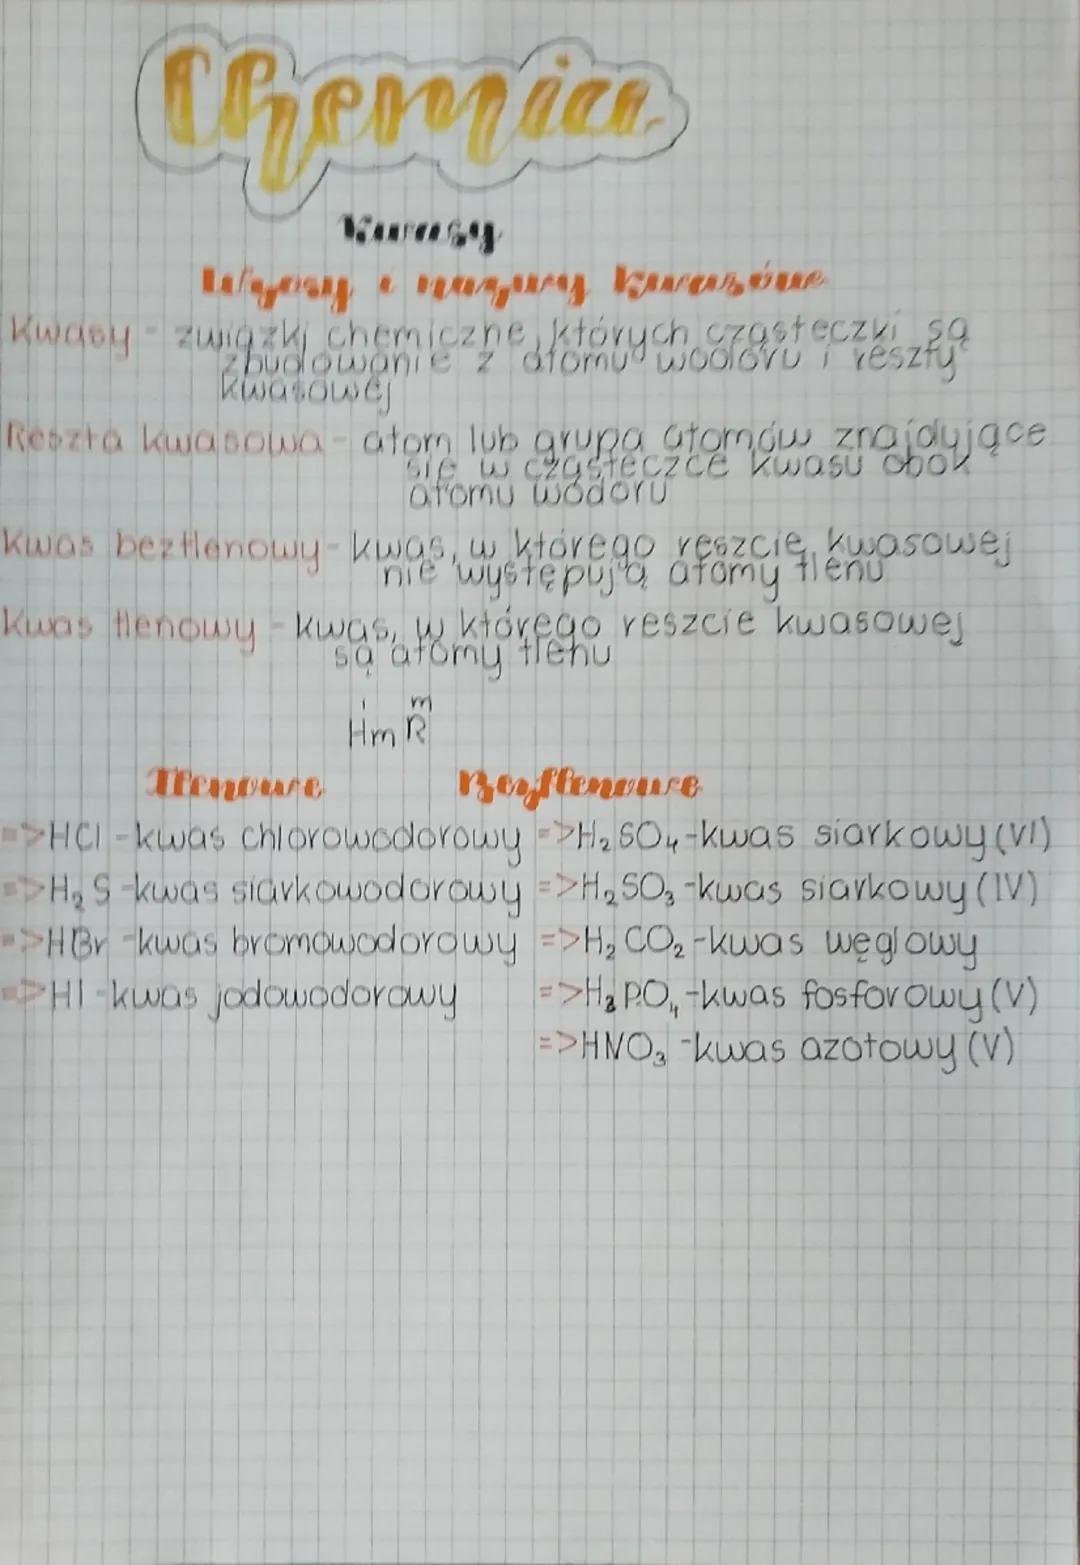 Chemia
Kwasy
Wzory i nazwy kwasów
Kwasy - związki chemiczne, których cząsteczki są
zbudowanie z atomu wodoru i reszty
kwasowej
Reszta kwasowa - atom lub grupa atomów znajdujące
się w cząsteczce kwasu obok
atomu wodoru
Kwas beztlenowy - kwas, w którego reszcie kwasowej
nie występują atomy tlenu
Kwas tlenowy - kwas, w którego reszcie kwasowej
są atomy tlenu
I m
Hm R
Tlenowe Beztlenowe
=>HCl - kwas chlorowodorowy =>H₂SO₄ - kwas siarkowy (VI)
=>H₂S - kwas siarkowodorowy =>H₂SO₃ - kwas siarkowy (IV)
=>HBr - kwas bromowodorowy =>H₂CO₂ - kwas węglowy
=>HI - kwas jodowodorowy =>H₃PO₄ - kwas fosforowy (V)
=>HNO₃ - kwas azotowy (V)